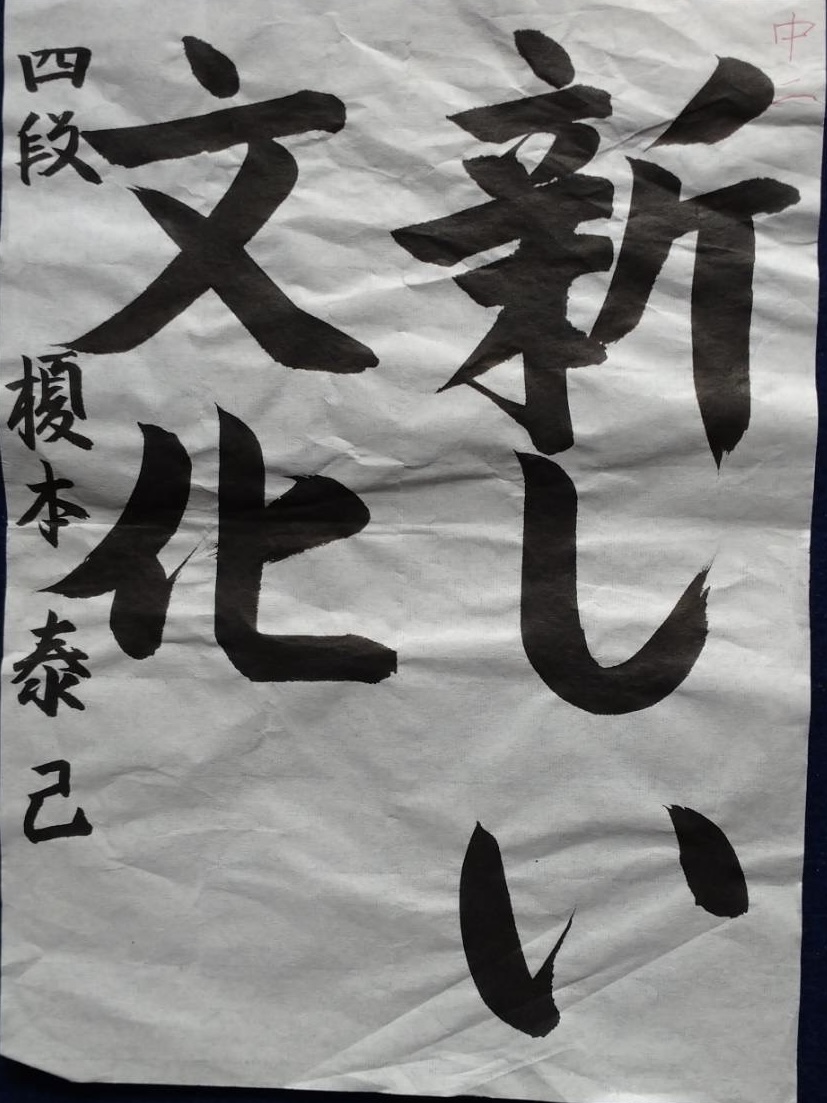 中二
新しい
文化
四段 榎本泰己